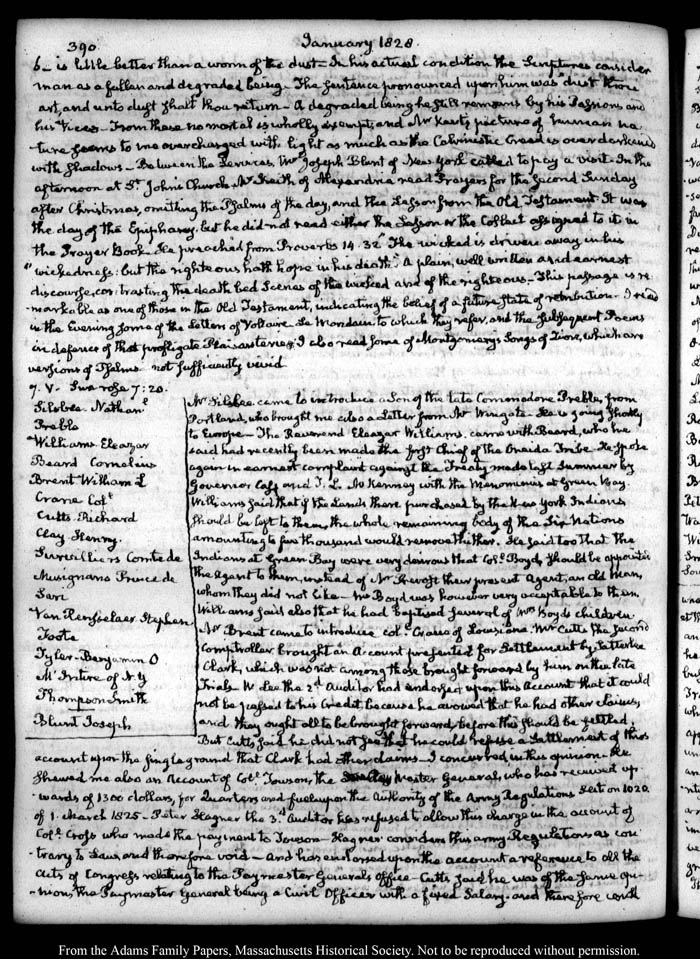 390
January 1828.
6_ is little better than a worm of the dust_ In his actual condition the Scriptures consider
man as a fallen and degraded being_ The sentence pronounced upon him was dust thou
art, and unto dust shalt thou return_ A degraded being he still remains by his Passions and
his vices_ From these no mortal is wholly exempt, and Mr picture of human na-
ture seems to me overcharged with light as much as the Calvinistic Creed is overdarkened
with shadows_ Between the Services, Mr Joseph Blunt of New York called to pay a visit_ In the
afternoon at St. John's Church, Mr Keith of Alexandria read Prayers for the second Sunday
after Christmas, omitting the Psalms of the day, and the Lesson from the Old Testament. It was
the day of the Epiphany, but he did not read either the Lesson or the Collect assigned to it in
the Prayer Book_ He preached from Proverbs 14. 32 "The wicked is driven away in his
"wickedness: but the righteous hath hope in his death". A plain, well written and earnest
discourse, contrasting the death bed scenes of the wicked and of the righteous_ This passage is re-
markable as one of those in the Old Testament, indicating the belief of a future state of retribution. I read
in the Evening some of the Letters of Voltaire. Le Mondain to which they refer, and the subsequent Poems
in defence of that profligate Plaisanterie; I also read some of Montgomery's Songs of Zion, which are
versions of Psalms_ not sufficiently vivid
7. V. Sun rose 7:20.
Silsbee. Nathanl
Preble
Williams Eleazar
Beard Cornelius
Brent William L
Crane Colt
Cutts. Richard
Clay Henry.
Survilliers Comte de
Musignano Prince de
Sari
Van Rensselaer Stephen
Foote
Tyler. Benjamin O
Mc Intire of N.Y
Thompson Smith
Blunt Joseph
Mr Silsbee came to introduce a Son of the late Commodore Preble, from
Portland, who brought me also a Letter from Mr Wingate. He is going shortly
to Europe_ The Reverend Eleazar Williams, came with Beard, who he
said had recently been made the first Chief of the Oneida Tribe. He spoke
again in earnest complaint against the Treaty made last Summer by
Governor Cass and T. L. McKenney with the Menominies at Green Bay.
Williams said that if the Lands there purchased by the New York Indians
should be left to them, the whole remaining body of the Six Nations
amounting to five thousand would remove thither. He said too that the
Indians at Green Bay were very desirous that Col. Boyd, should be appointed
the Agent to them, instead of Mr their present Agent, an old Man,
whom they did not like_ Mr Boyd was however very acceptable to them.
Williams said also that he had baptised several of Mrs Boyd's children.
Mr Brent came to introduce Col. of Louisiana. Mr Cutts the second
Comptroller brought an Account presented for Settlement by Satterlee
Clark, which was not among those brought forward by him on the late
Trials. W. Lee the 2d Auditor had endorsed upon this Account that it could
not be passed to his credit, because he avowed that he had other Claims,
and they ought all to be brought forward before this should be settled.
But Cutts said he did not see that he could refuse a Settlement of this
account upon the single ground that Clark had other claims_ I concurred in this opinion. He
shewed me also an Account of Colt. Towson, the master General, who has received up-
wards of 1300 dollars, for Quarters and fuel upon the Authority of the Army Regulations Section 1020
of 1. March 1825_ Peter Hagner the 3d. Auditor has refused to allow this charge in the account of
Col. Cross who made the payment to Towson_ Hagner considers this army Regulation as con-
trary to Law, and therefore void_ And has endorsed upon the account a reference to all the
acts of Congress relating to the Paymaster General's Office_ Cutts said he was of the same opi-
nion, the Paymaster General being a Civil Officer with a fixed Salary. and therefore not
From the Adams Family Papers, Massachusetts Historical Society. Not to be reproduced without permission.